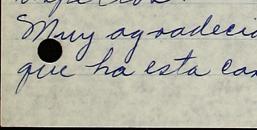 Muy agradecid
que ha esta car